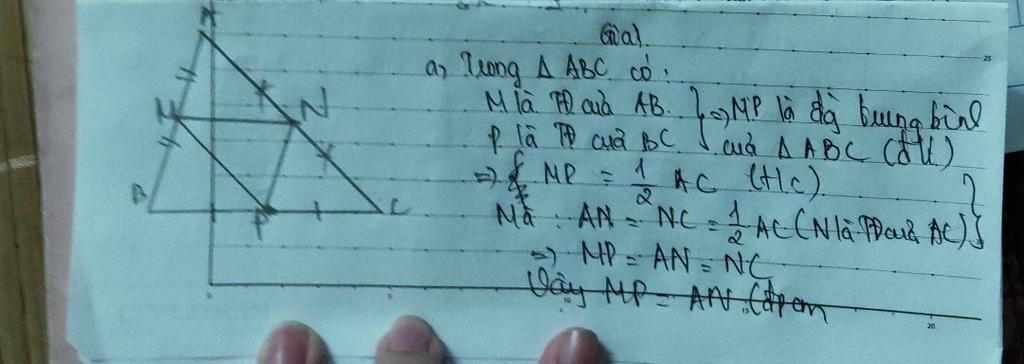 Giải
a, Trong Δ ABC có:
M là TĐ của AB. } => MP là đg trung bình
P là TĐ của BC của Δ ABC (đ/l)
=> MP = 1/2 AC (t/c)
Mà: AN = NC = 1/2 AC (N là TĐ của AC) }
=> MP = AN = NC
Vậy MP = AN (đpcm
A
M
N
B
P
C
25
20